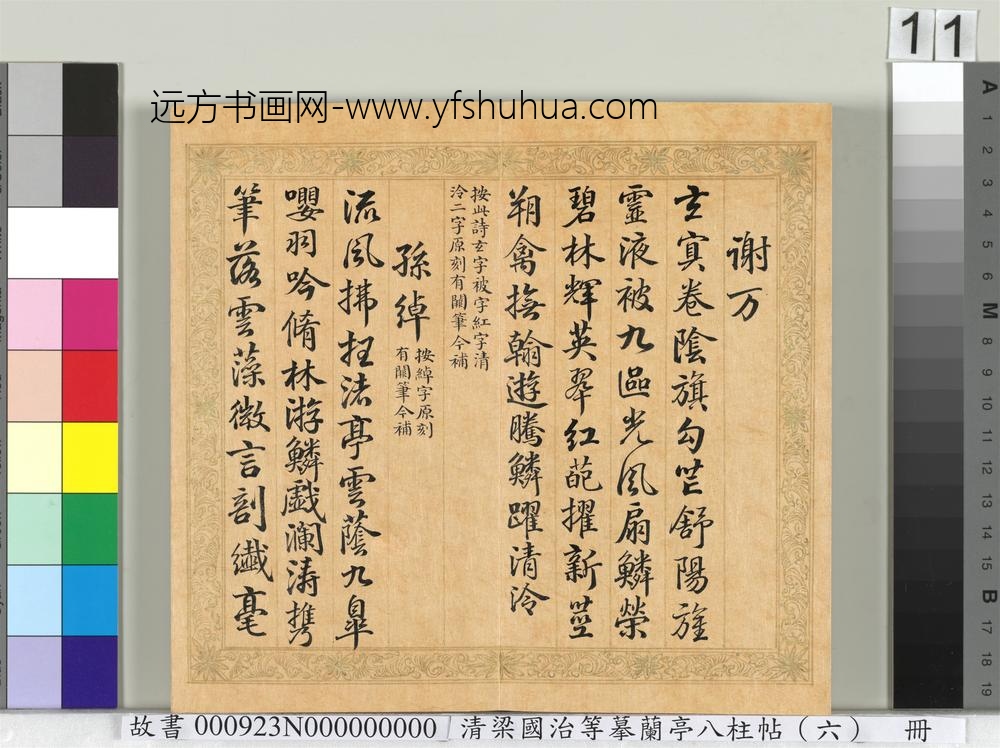 11
远方书画网-www.yfshuhua.com
谢万
玄冥卷陰旗勾芒舒陽旌
靈液被九區光風扇鱗榮
碧林輝英翠紅葩擢新莖
朔禽撫翰遊騰鱗躍清泠
按此詩玄字被字紅字清
泠二字原刻有闕筆今補
孫綽
按綽字原刻
有闕筆今補
流風拂枉渚亭雲蔭九皐
嚶羽吟脩林游鱗戲瀾濤攜
筆落雲藻微言剖纖毫
A 1 2 3 4 5 6 M 8 9 10 11 12 13 14 15 B 17 18 19
故書 000923N000000000 清梁國治等摹蘭亭八柱帖（六） 冊